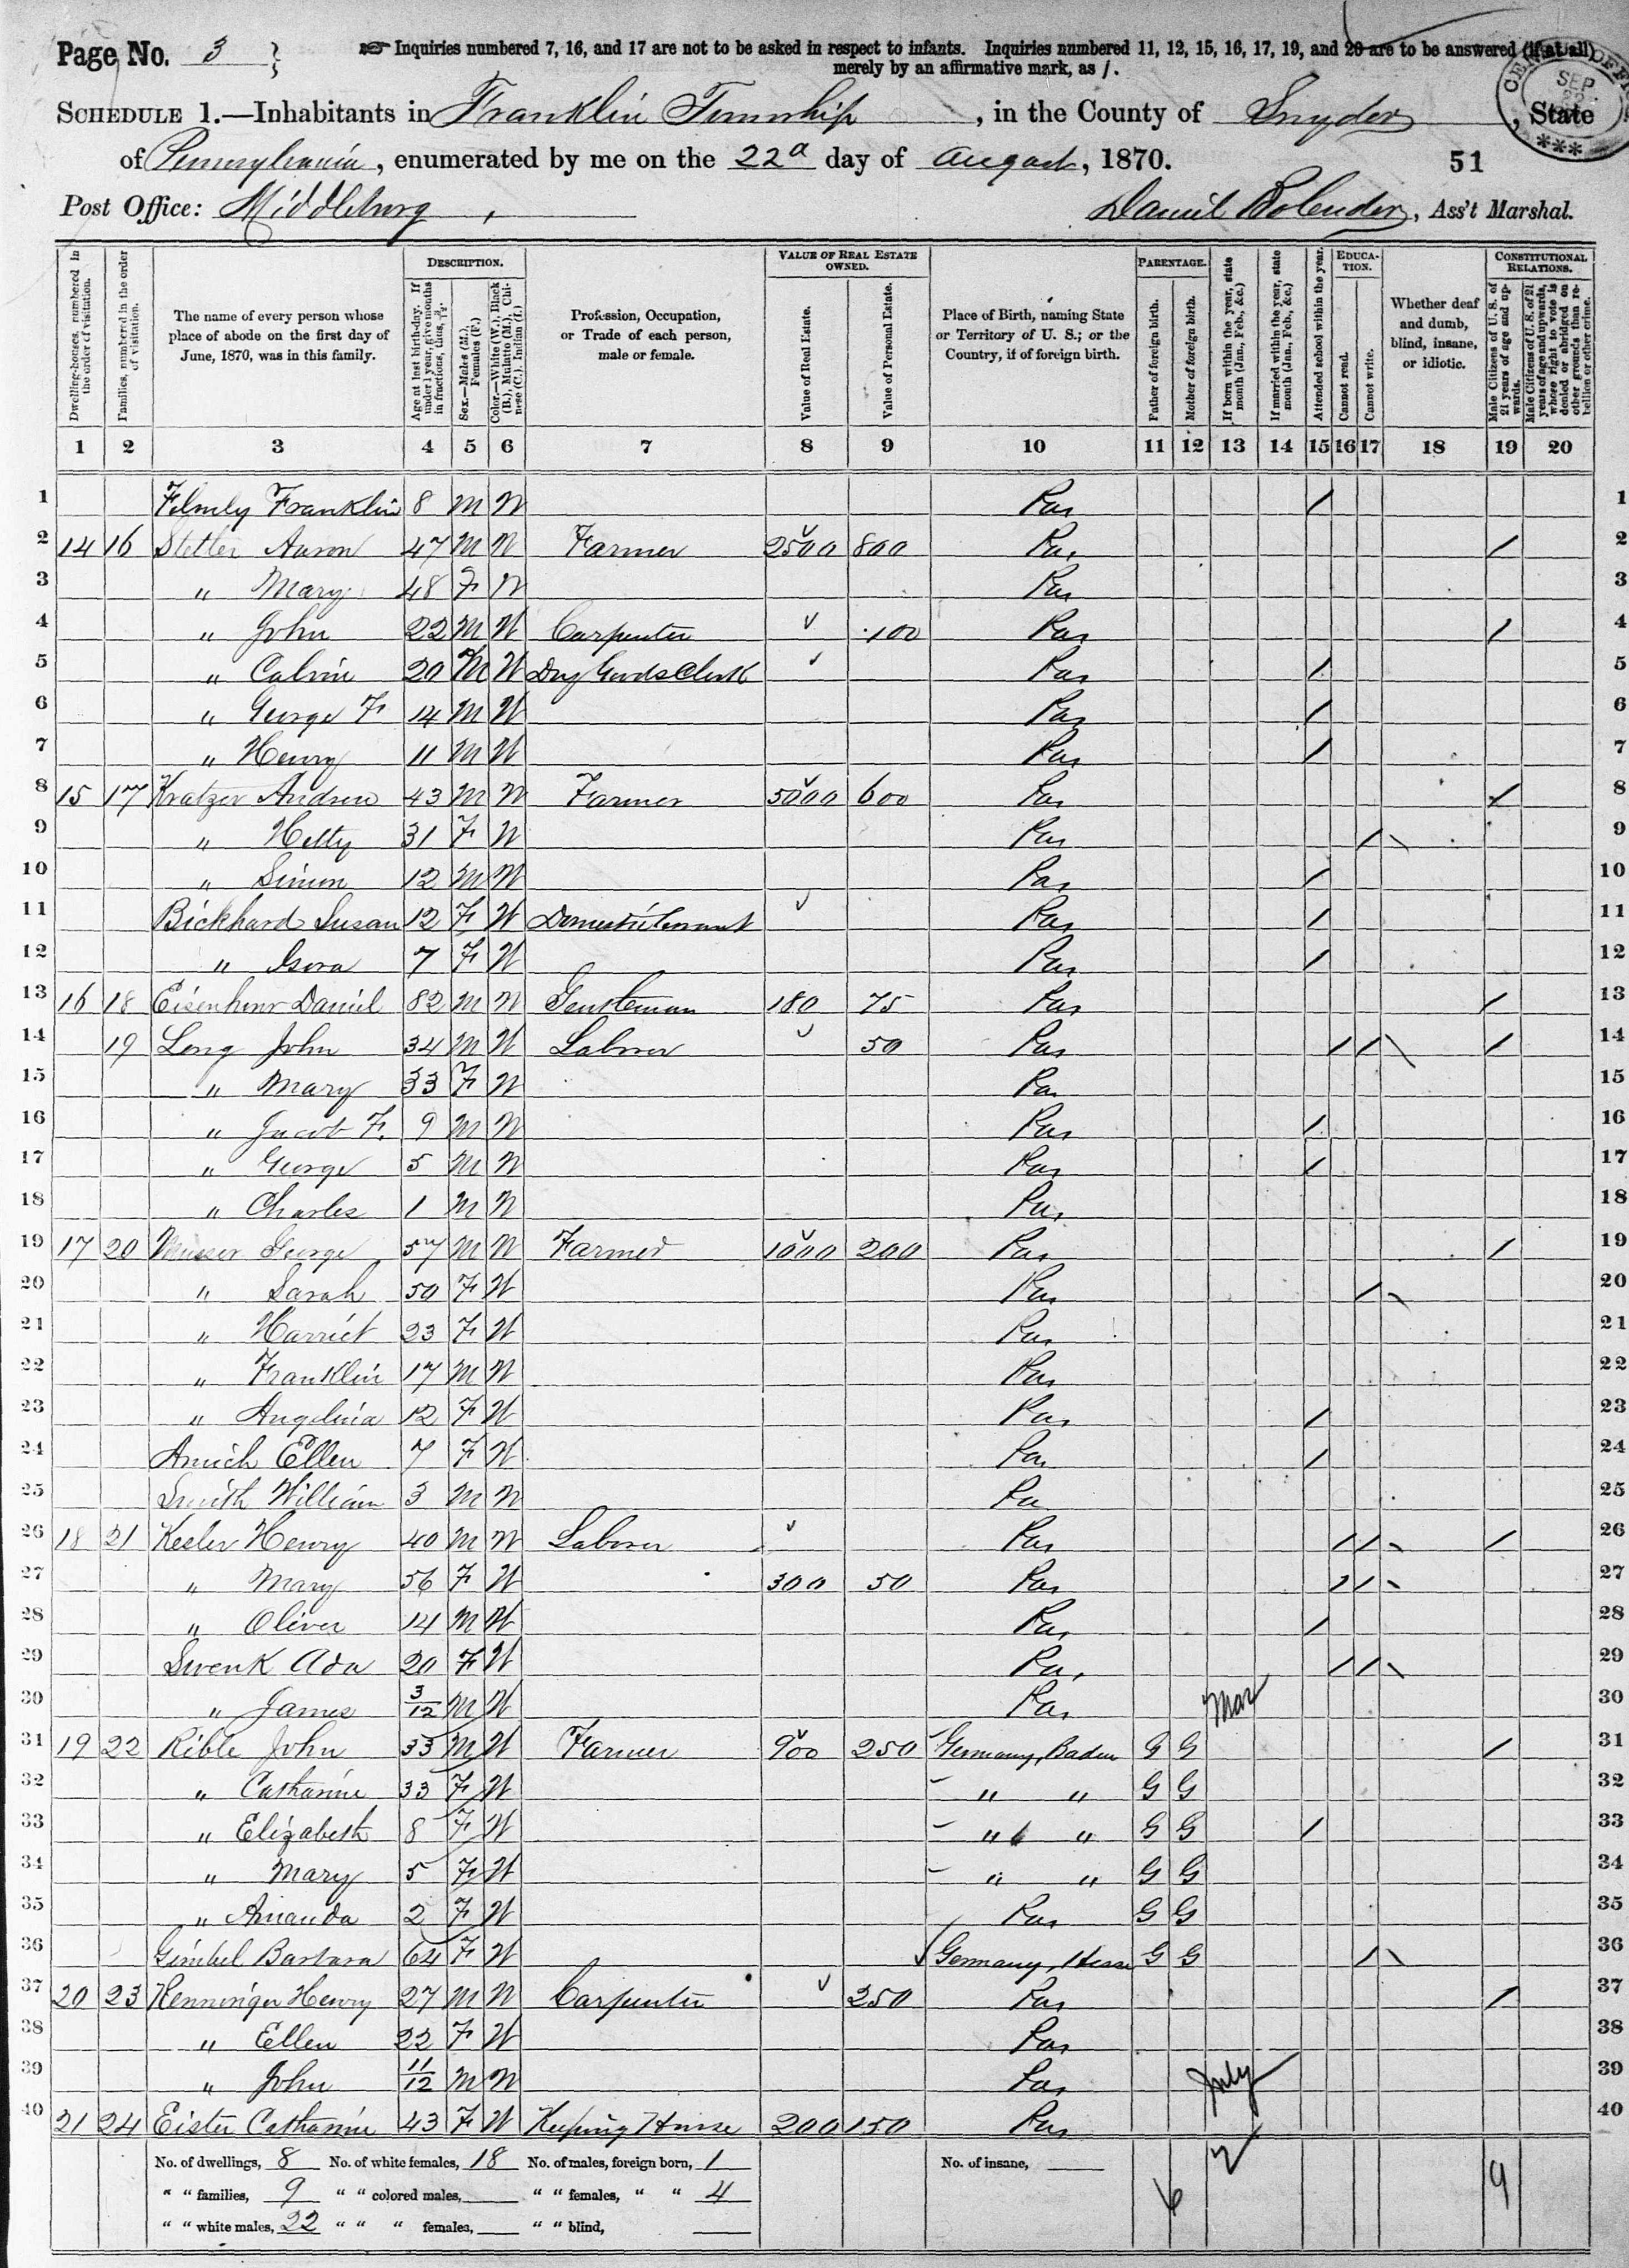 Page No. 3 }
☞ Inquiries numbered 7, 16, and 17 are not to be asked in respect to infants. Inquiries numbered 11, 12, 15, 16, 17, 19, and 20 are to be answered (if at all)
merely by an affirmative mark, as /.
SCHEDULE 1.—Inhabitants in Franklin Township, in the County of Snyder, State
of Pennsylvania, enumerated by me on the 22d day of August, 1870. 51
Post Office: Middleburg, Daniel Bolender, Ass't Marshal.
SEP
Dwelling-houses, numbered in the order of visitation.
Families, numbered in the order of visitation.
The name of every person whose place of abode on the first day of June, 1870, was in this family.
DESCRIPTION.
Age at last birth-day. If under 1 year, give months in fractions, thus, 3/12.
Sex.—Males (M.), Females (F.)
Color.—White (W.), Black (B.), Mulatto (M.), Chinese (C.), Indian (I.)
Profession, Occupation, or Trade of each person, male or female.
VALUE OF REAL ESTATE OWNED.
Value of Real Estate.
Value of Personal Estate.
Place of Birth, naming State or Territory of U. S.; or the Country, if of foreign birth.
PARENTAGE.
Father of foreign birth.
Mother of foreign birth.
If born within the year, state month (Jan., Feb., &c.)
If married within the year, state month (Jan., Feb., &c.)
Attended school within the year.
EDUCATION.
Cannot read.
Cannot write.
Whether deaf and dumb, blind, insane, or idiotic.
CONSTITUTIONAL RELATIONS.
Male Citizens of U. S. of 21 years of age and upwards.
Male Citizens of U. S. of 21 years of age and upwards, where right to vote is denied or abridged on other grounds than rebellion or other crime.
1 2 3 4 5 6 7 8 9 10 11 12 13 14 15 16 17 18 19 20
1 Franklin 8 M W Pa, / 1
2 14 16 Stetler Aaron 47 M W Farmer 2500 800 Pa, / 2
3 " Mary 48 F W Pa, 3
4 " John 22 M W Carpenter 100 Pa, / 4
5 " Calvin 20 M W Dry Goods Clerk Pa, / 5
6 " George F 14 M W Pa, / 6
7 " Henry 11 M W Pa, / 7
8 15 17 Kratzer Andrew 43 M W Farmer 5000 600 Pa, / 8
9 " Hetty 31 F W Pa, / 9
10 " Simon 12 M W Pa, / 10
11 Bickhard Susan 12 F W Domestic Servant Pa, / 11
12 " 7 F W Pa, / 12
13 16 18 Eisenhour Daniel 82 M W Gentleman 180 75 Pa, / 13
14 19 Long John 34 M W Laborer 50 Pa, / / / 14
15 " Mary 33 F W Pa, 15
16 " Jacob F. 9 M W Pa, / 16
17 " George 5 M W Pa, / 17
18 " Charles 1 M W Pa, 18
19 17 20 Musser George 57 M W Farmer 1000 200 Pa, / 19
20 " Sarah 50 F W Pa, / 20
21 " Harriet 23 F W Pa, 21
22 " Franklin 17 M W Pa, 22
23 " Angelina 12 F W Pa, / 23
24 Ellen 7 F W Pa, / 24
25 Smith William 3 M W Pa 25
26 18 21 Kesler Henry 40 M W Laborer Pa, / / / 26
27 " Mary 56 F W 300 50 Pa, / / 27
28 " Oliver 14 M W Pa, / 28
29 Swenk Ada 20 F W Pa, / / 29
30 " James 3/12 M W Pa, Mar 30
31 19 22 Rible John 33 M W Farmer 900 250 Germany, Baden G G / 31
32 " Catharine 33 F W " " G G 32
33 " Elizabeth 8 F W " " G G / 33
34 " Mary 5 F W " " G G 34
35 " Amanda 2 F W Pa, G G 35
36 Gimbel Barbara 64 F W Germany, Hesse G G / 36
37 20 23 Henninger Henry 27 M W Carpenter 250 Pa, / 37
38 " Ellen 22 F W Pa, 38
39 " John 11/12 M W Pa, July 39
40 21 24 Eister Catharine 43 F W Keeping House 200 150 Pa, 40
No. of dwellings, 8 No. of white females, 18 No. of males, foreign born, 1 No. of insane,
" " families, 9 " " colored males, " " females, " " 4 6 2 9
" " white males, 22 " " " females, " " blind,